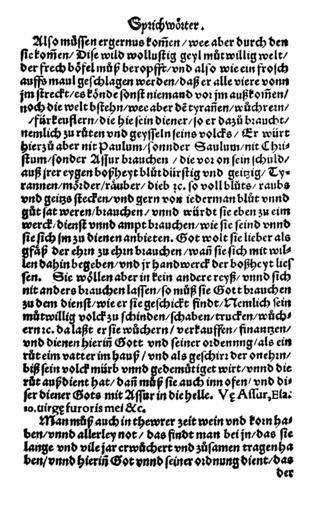 Sprichwörter.
Also müssen ergernus kom̃en / wee aber durch den
sie kom̃en / Dise wild wollustig geyl mütwillig welt /
der frech böfel müß beropfft / vnd also wie ein frosch
auffs maul geschlagen werden / daß er alle viere vonn
jm streckt / es könde sonst niemand vor jm außkom̃en /
noch die welt bstehn / wee aber dē tyrañen / wüchrern /
/ fürkeuflern / die hie sein diener / so er dazů braucht
nemlich zů rüten vnd geysseln seins volcks / Er würt
hierzů aber nit Paulum / sonnder Saulum / nit Chri=
stum / sonder Assur brauchen / die vor on sein schuld /
auß jrer eygen boßheyt blůtdürstig vnd geitzig / Ty=
rannen / mörder / räuber / dieb ꝛc. so voll blůts / raubs
vnd geitzs stecken / vnd gern von iederman blůt vnnd
gůt sat weren / brauchen / vnnd würdt sie eben zů eim
werck / dienst vnnd ampt brauchen / wie sie seind vnnd
sie sich jm zů dienen anbieten. Got wolt sie lieber als
gfäß der ehrn zů ehrn brauchen / wañ sie sich mit wil=
len dahin begeben / vnd jr handwerck der boßheyt lies
sen. Sie wöllen aber in kein andere reyß / vnnd sich
nit anders brauchen lassen / so můß sie Gott brauchen
zů dem dienst / wie er sie geschickt findt / Nemlich sein
můtwillig volck zů schinden / schaben / trucken / wůch=
ern ꝛc. da laßt er sie wüchern / verkauffen / finantzen /
vnd dienen hieriñ Gott vnd seiner ordennung / als ein
rüt eim vatter im hauß / vnd als geschirr der onehrn /
biß sein volck mürb vnnd gedemütiget wirt / vnnd die
růt außdient hat / dañ můß sie auch inn ofen / vnd di=
ser diener Gots mit Assur in die helle. Vę Assur, Esa.
10. uirgę furoris mei &c.
Man můß auch in thewrer zeit wein vnd korn ha=
ben / vnnd allerley not / das findt man bei jn / das sie
lange vnd vile jar erwüchert vnd zůsamen tragen ha
ben / vnnd hieriñ Got vnnd seiner ordnung dient / das
der